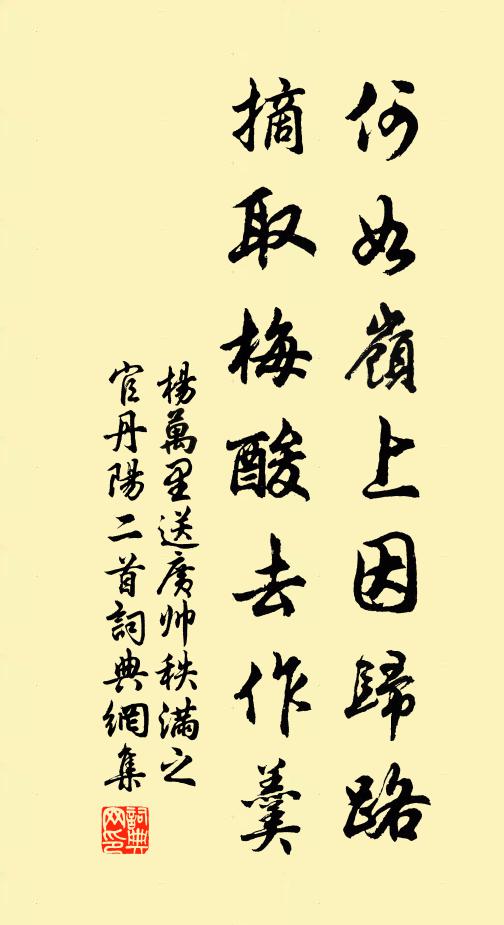 何如嶺上因歸路
摘取梅酸去作羹
楊萬里送廣帅秩滿之
官丹陽二首詞典網集
詞典网印